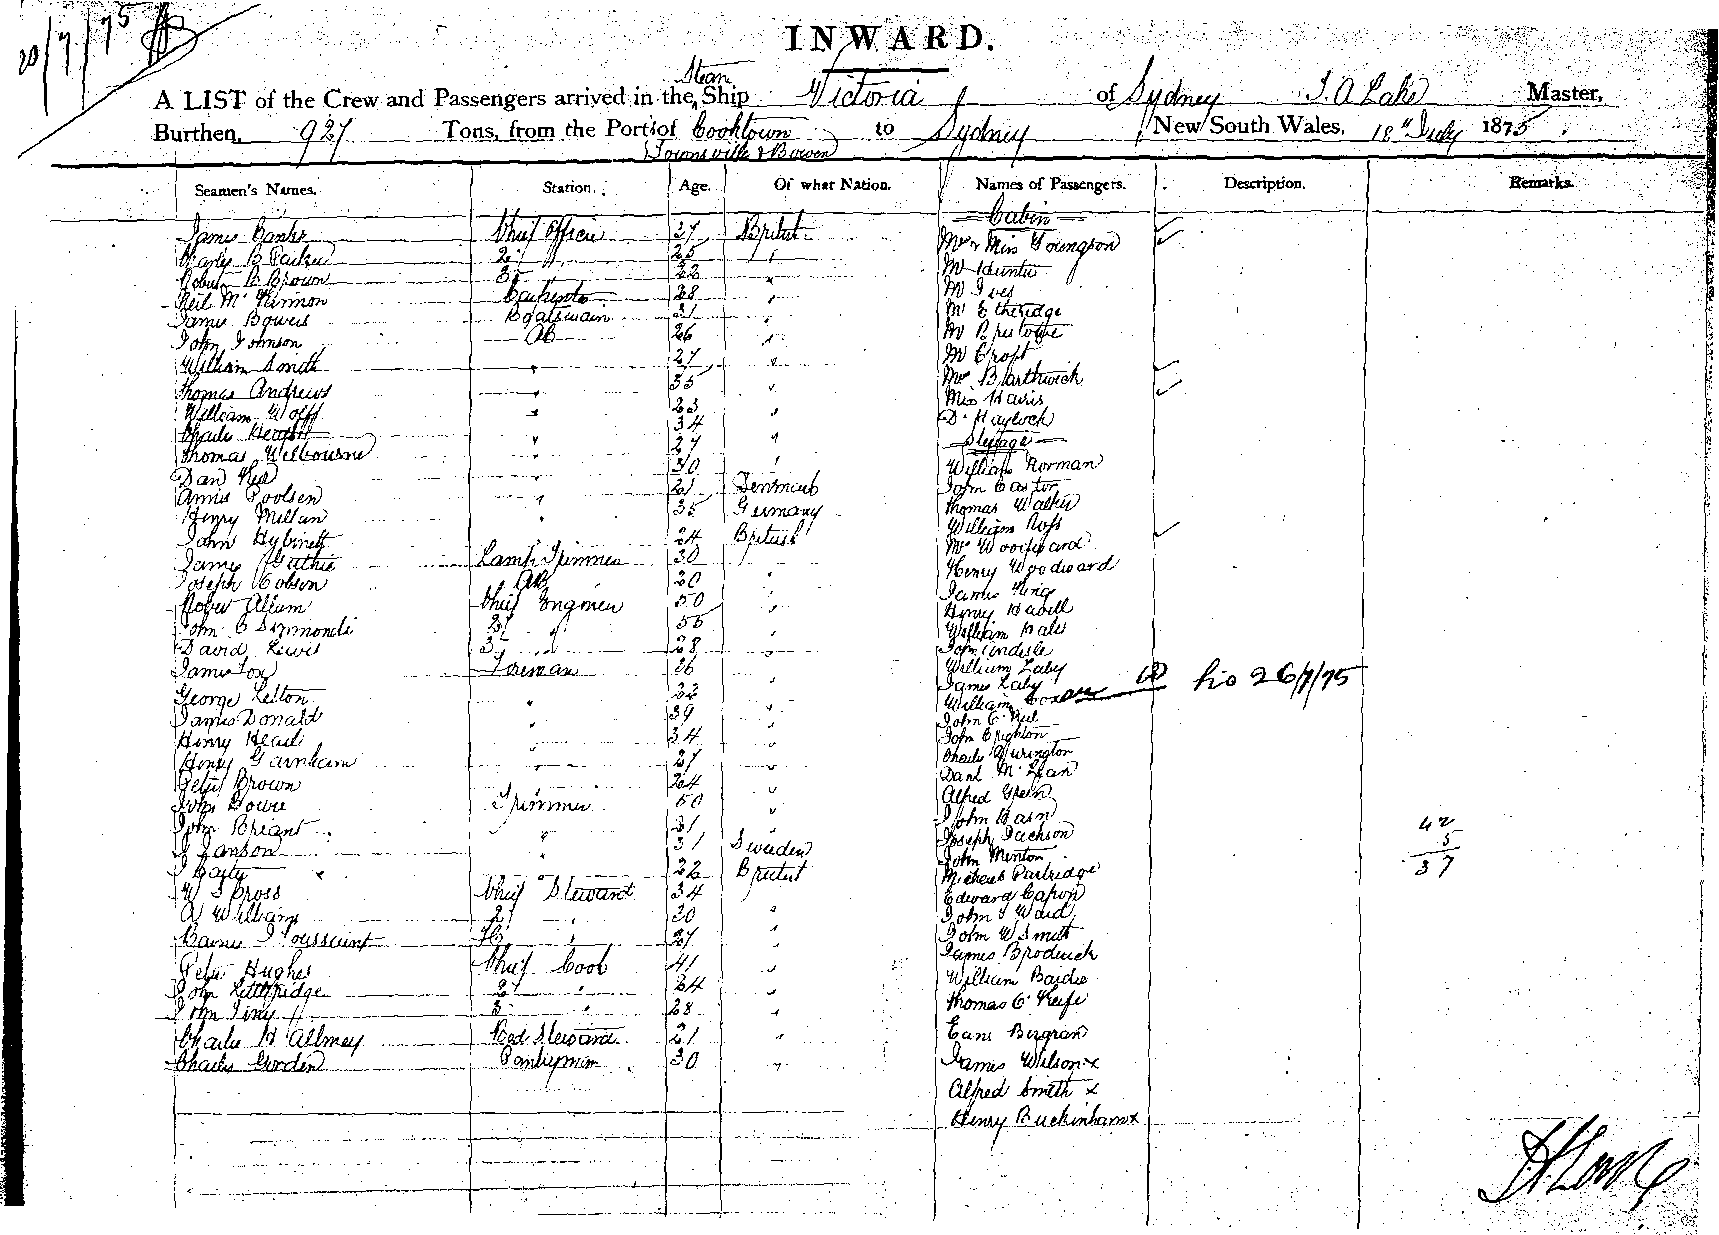 20/7/75
INWARD.
Steam
A LIST of the Crew and Passengers arrived in the Ship Victoria of Sydney J. A Lake Master,
Burthen, 927 Tons, from the Port's of Cooktown to Sydney New South Wales, 18th July 1875
Townsville & Bowen
Seamen's Names. Station. Age. Of what Nation. Names of Passengers. Description. Remarks.
Cabin
James Banks Chief Officer 37 British Mr & Miss Youngson
Charles B Parker 2d " 25 " Mr Hunter
Robert B Brown 3d 22 " Mr Ives
Neil McKinnon Carpenter 28 " Mr Etheridge
James Bowers Boatswain 31 " Mr Bristowe
John Johnson AB 26 " Mr Croft
William Smith " 27 " Mrs Blarthwick
Thomas Andrews " 35 " Miss Haris
William Wolff " 23 " Dr Haylock
Charles " 34 " Steerage
Thomas Welbourne " 27 " William Norman
Dan Neil " 30 " John Castor
Poolsen " 21 Denmark Thomas Walker
Henry Millan " 35 Germany William Ross
John " 24 British Mrs Woodward
James Guthrie Lamp Trimmer 30 Henry Woodward
Joseph Cobson AB 20 " James King
Robert Allum Chief Engineer 50 " Henry Havell
John C Simmonds 2d " 56 " William Hales
David Lewis 3d " 28 " John
James Fox Fireman 36 " William Laby
George Letton " 22 " James Laby
James Donald " 39 " William (2) his 26/7/75
Henry Head " 34 " John C. Neil
Henry Garnham " 27 " John Crighton
Peter Brown " 24 " Charles
John Dowie Trimmer 50 " Danl McLean
John Briant " 31 " Alfred Green
J Janson " 31 Sweden John
J " 22 British Joseph Jackson
W J Cross Chief Steward 34 John Minton
A William 2d " 30 " Michael Partridge
Barnes J Toussaint " 27 " Edward Capon
Peter Hughes Chief Cook 41 " John J Waid
John Lethbridge 2d " 24 " John W Smith
John 3 " 28 " James Broderick
Charles H Allmey Steward 21 " William Baidie
Charles Gorden Pantryman 30 " Thomas O'Keefe
Bergran
James Wilson x
Alfred Smith x
Henry Buckinham x
42
5
37